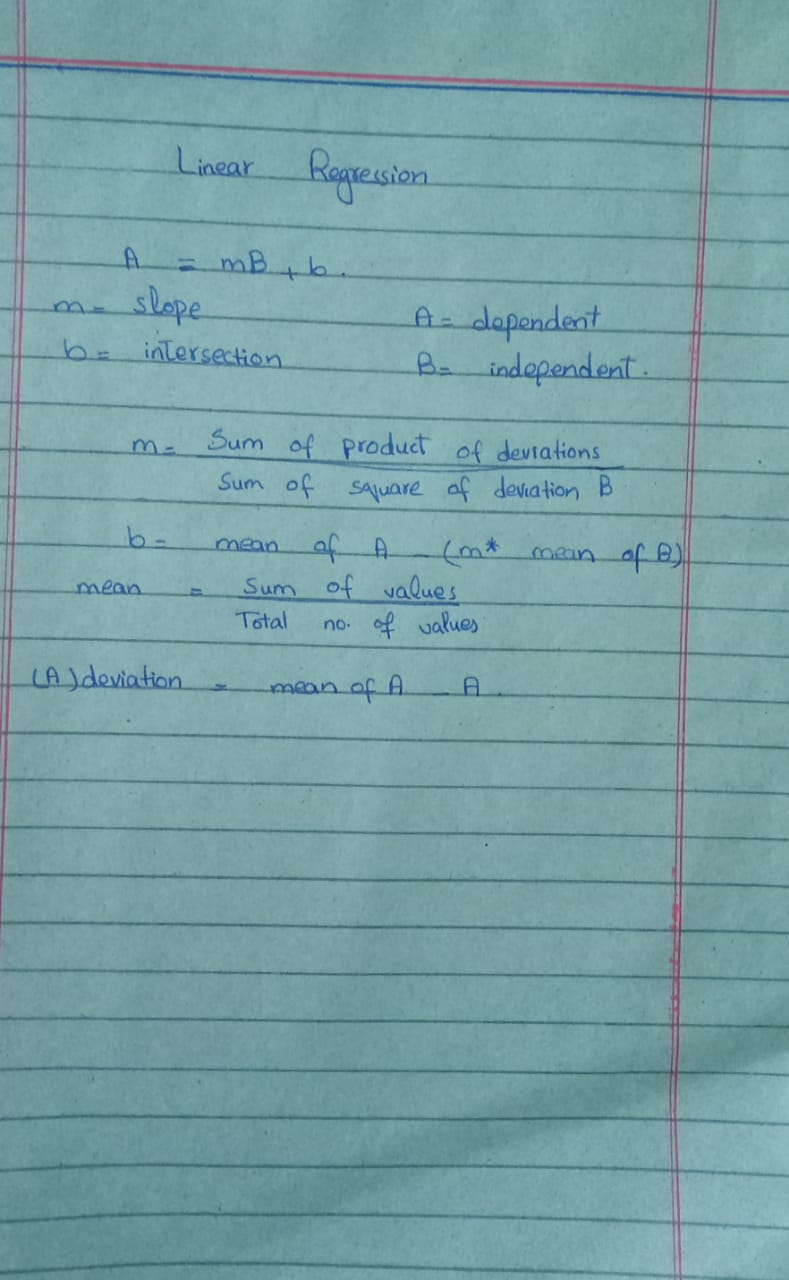 Linear Regression
A = mB + b.
m = slope A = dependent
b = intersection B = independent.
m = Sum of product of deviations
Sum of square of deviation B
b = mean of A - (m* mean of B)
mean = Sum of values
Total no. of values
(A) deviation = mean of A - A.